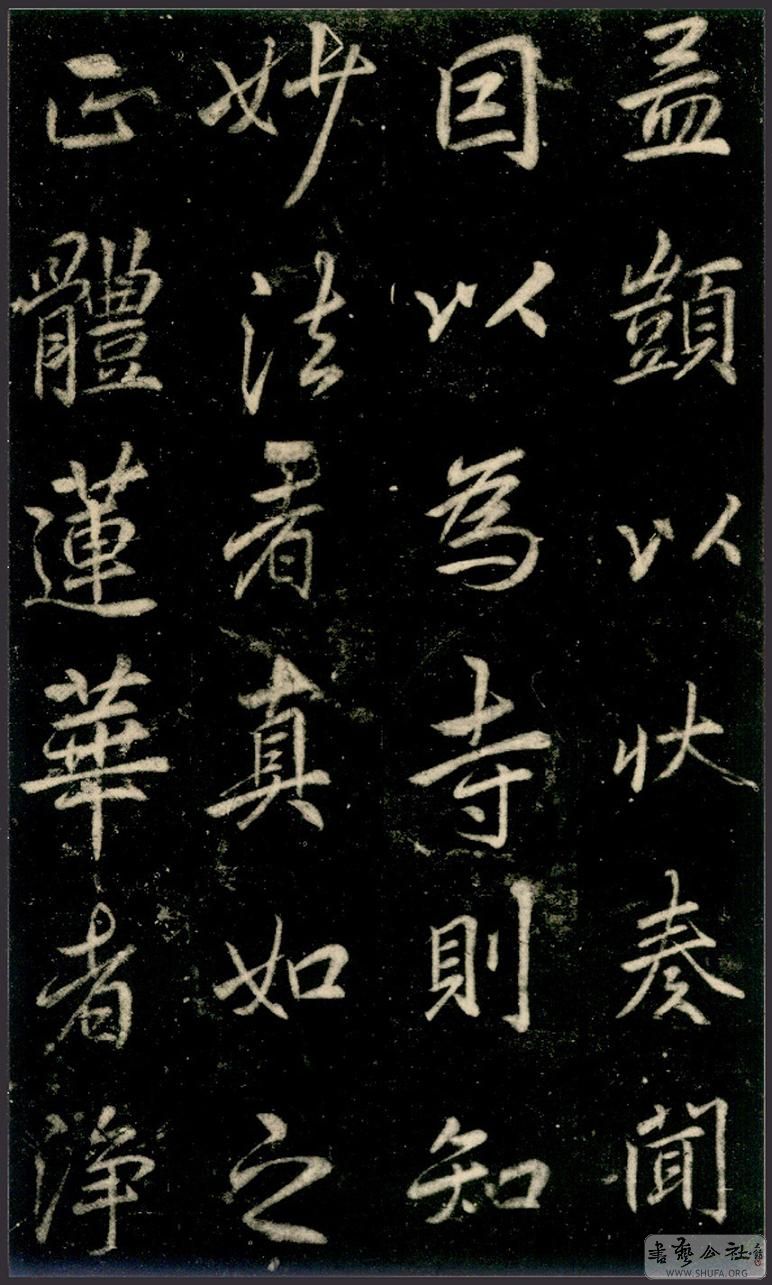 孟顗以狀奏聞
因以為寺則知
妙法者真如之
正體蓮華者淨
書藝公社
WWW.SHUFA.ORG